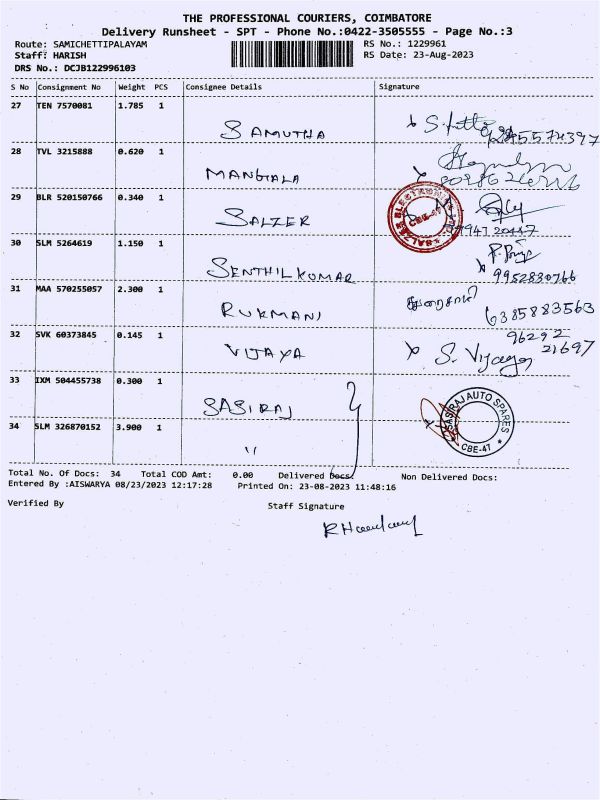 THE PROFESSIONAL COURIERS, COIMBATORE
Delivery Runsheet - SPT - Phone No.:0422-3505555 - Page No.:3
Route: SAMICHETTIPALAYAM RS No.: 1229961
Staff: HARISH RS Date: 23-Aug-2023
DRS No.: DCJB122996103
S No Consignment No Weight PCS Consignee Details Signature
27 TEN 7570081 1.785 1
SAMUTHA
28 TVL 3215888 0.620 1
MANGALA
29 BLR 520150766 0.340 1
SALZER
SALZER ELECTRONICS CBE-47
30 SLM 5264619 1.150 1
SENTHIL KUMAR
9952830766
31 MAA 570255057 2.300 1
RUKMANI துரைசாமி 6385883563
32 SVK 60373845 0.145 1 96292
VIJAYA S. Vijaya 21697
33 IXM 504455738 0.300 1
SASIRAJ
SASIRAJ AUTO SPARES
CBE-47
34 SLM 326870152 3.900 1
"
Total No. Of Docs: 34 Total COD Amt: 0.00 Delivered Docs: Non Delivered Docs:
Entered By :AISWARYA 08/23/2023 12:17:28 Printed On: 23-08-2023 11:48:16
Verified By Staff Signature